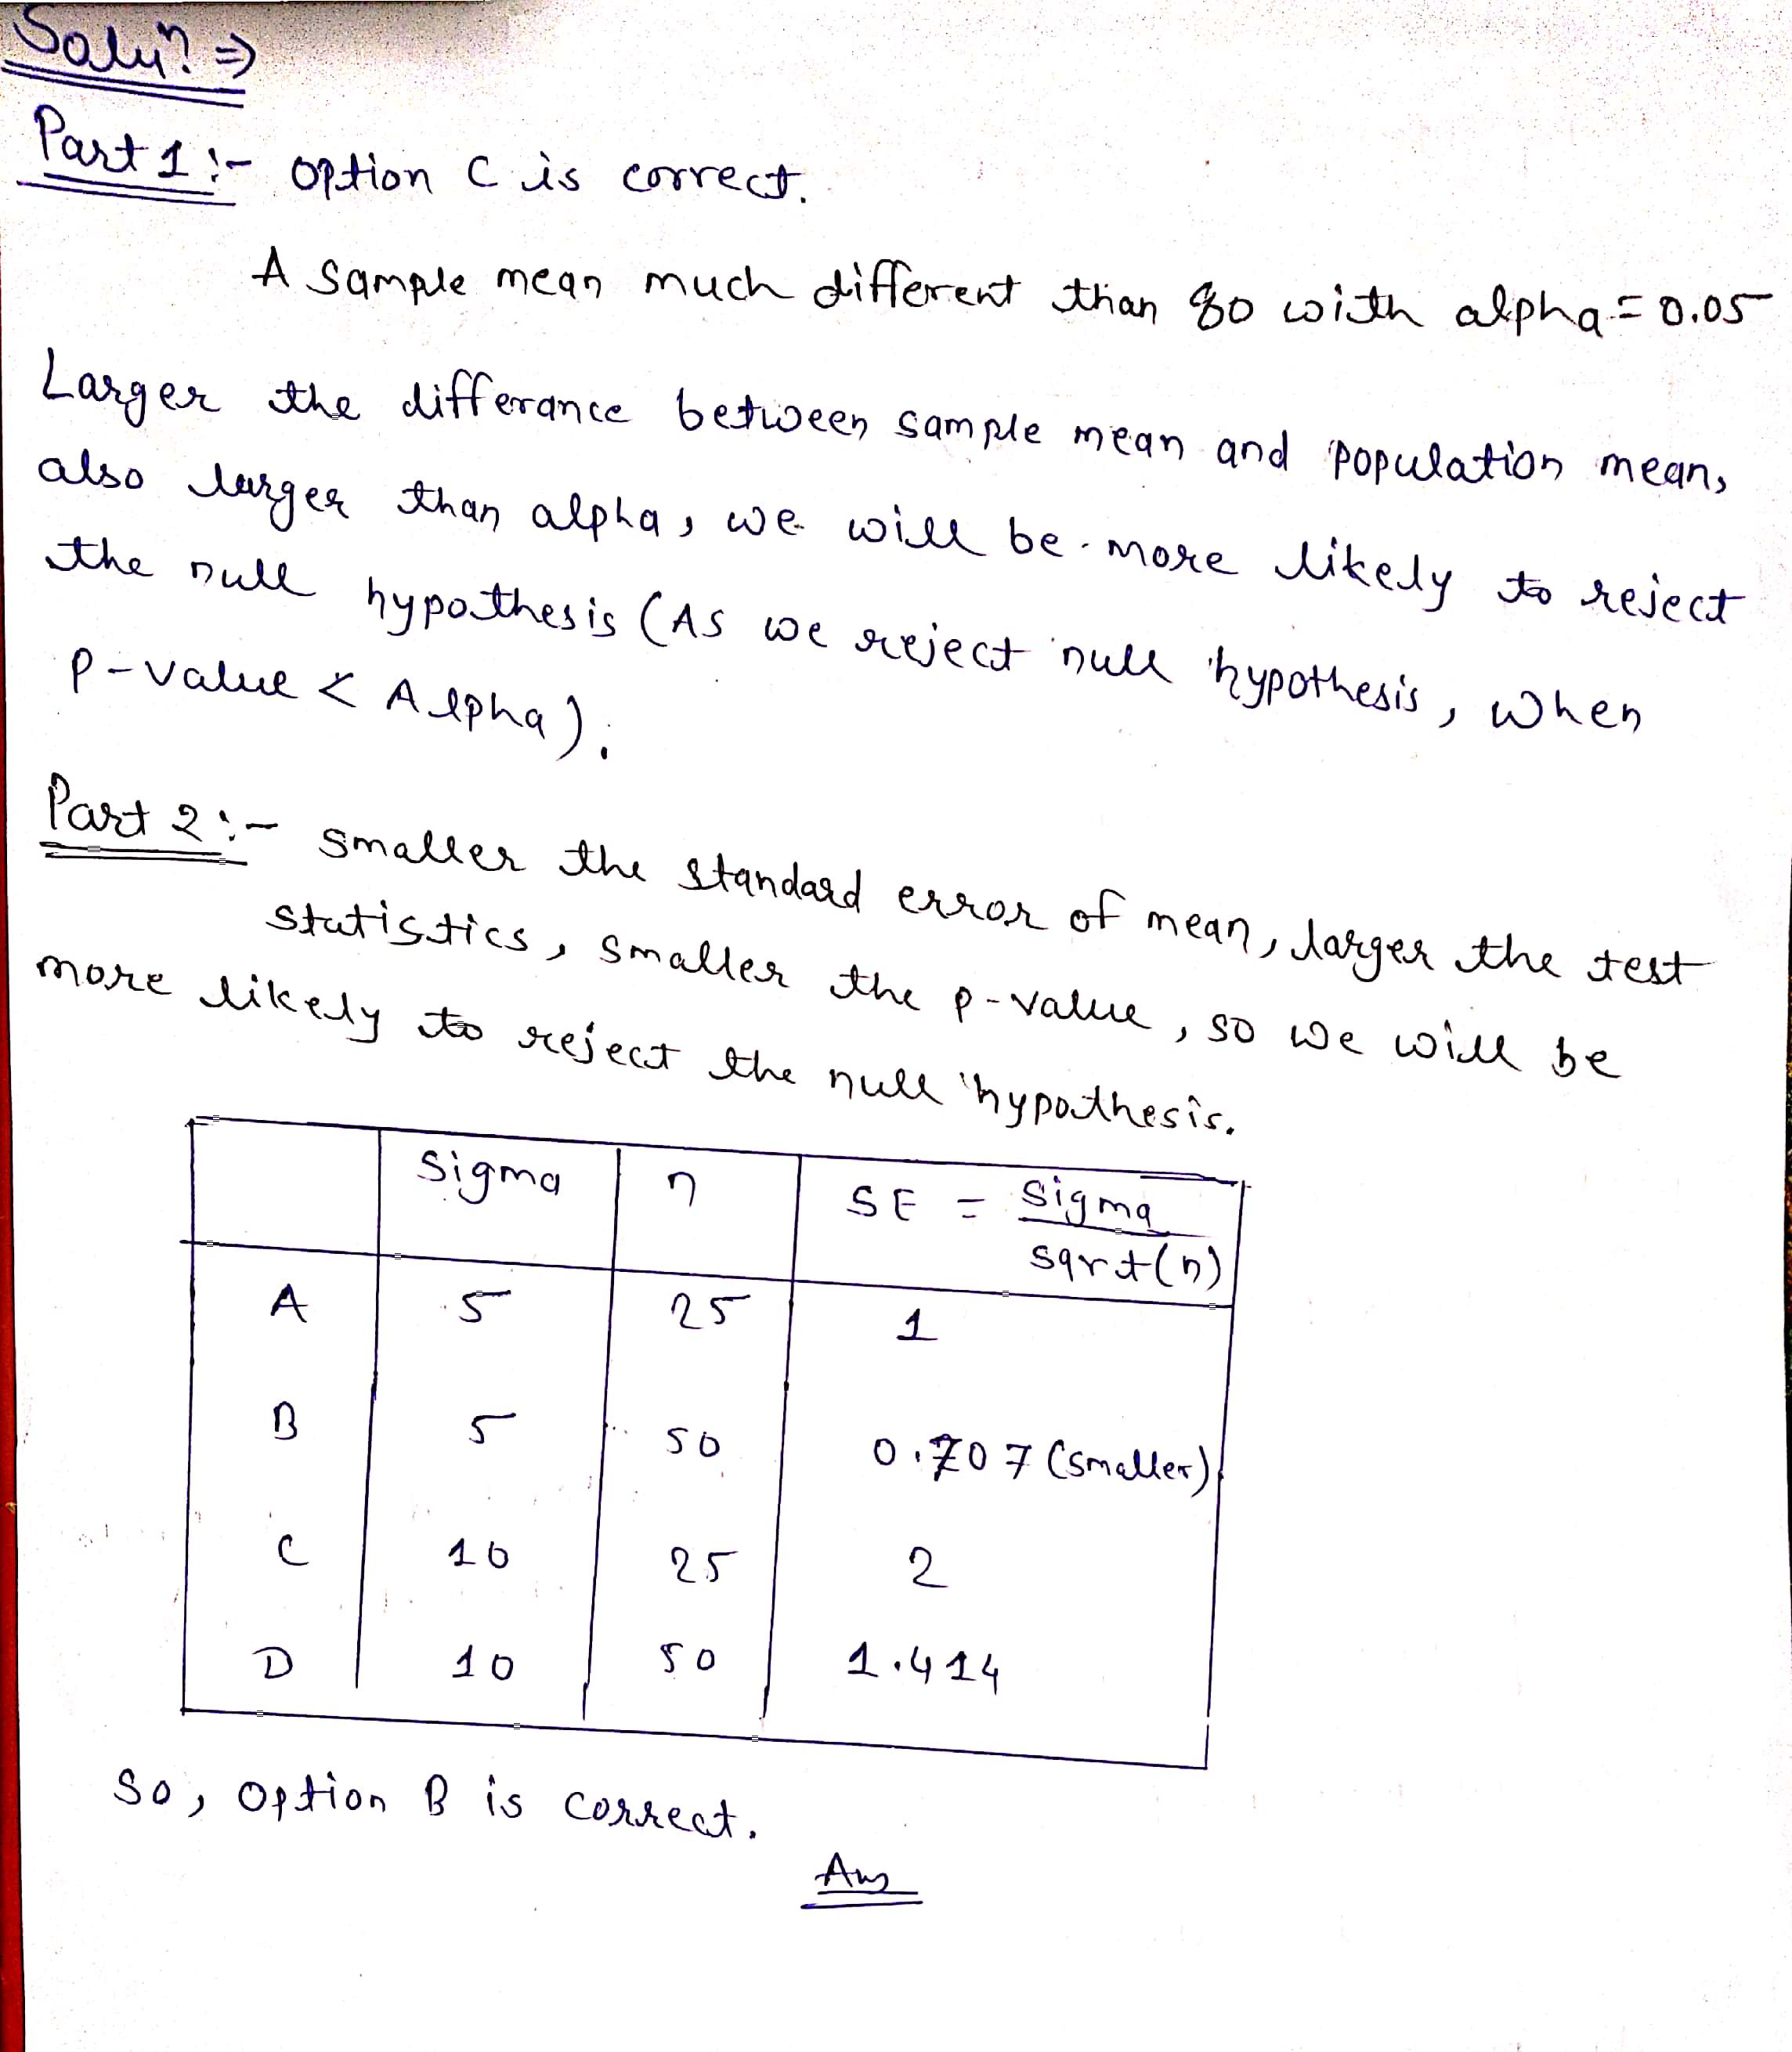 Soluⁿ ⇒
Part 1 :- option C is correct.
A sample mean much different than 80 with alpha = 0.05
Larger the differance between sample mean and population mean,
also larger than alpha, we will be more likely to reject
the null hypothesis (As we reject null hypothesis, when
P-value < Alpha).
Part 2 :- smaller the standard error of mean, larger the test
statistics, smaller the p-value, so we will be
more likely to reject the null hypothesis.
Sigma n SE = Sigma
sqrt(n)
A 5 25 1
B 5 50 0.707 (smaller)
C 10 25 2
D 10 50 1.414
So, option B is correct.
Ans